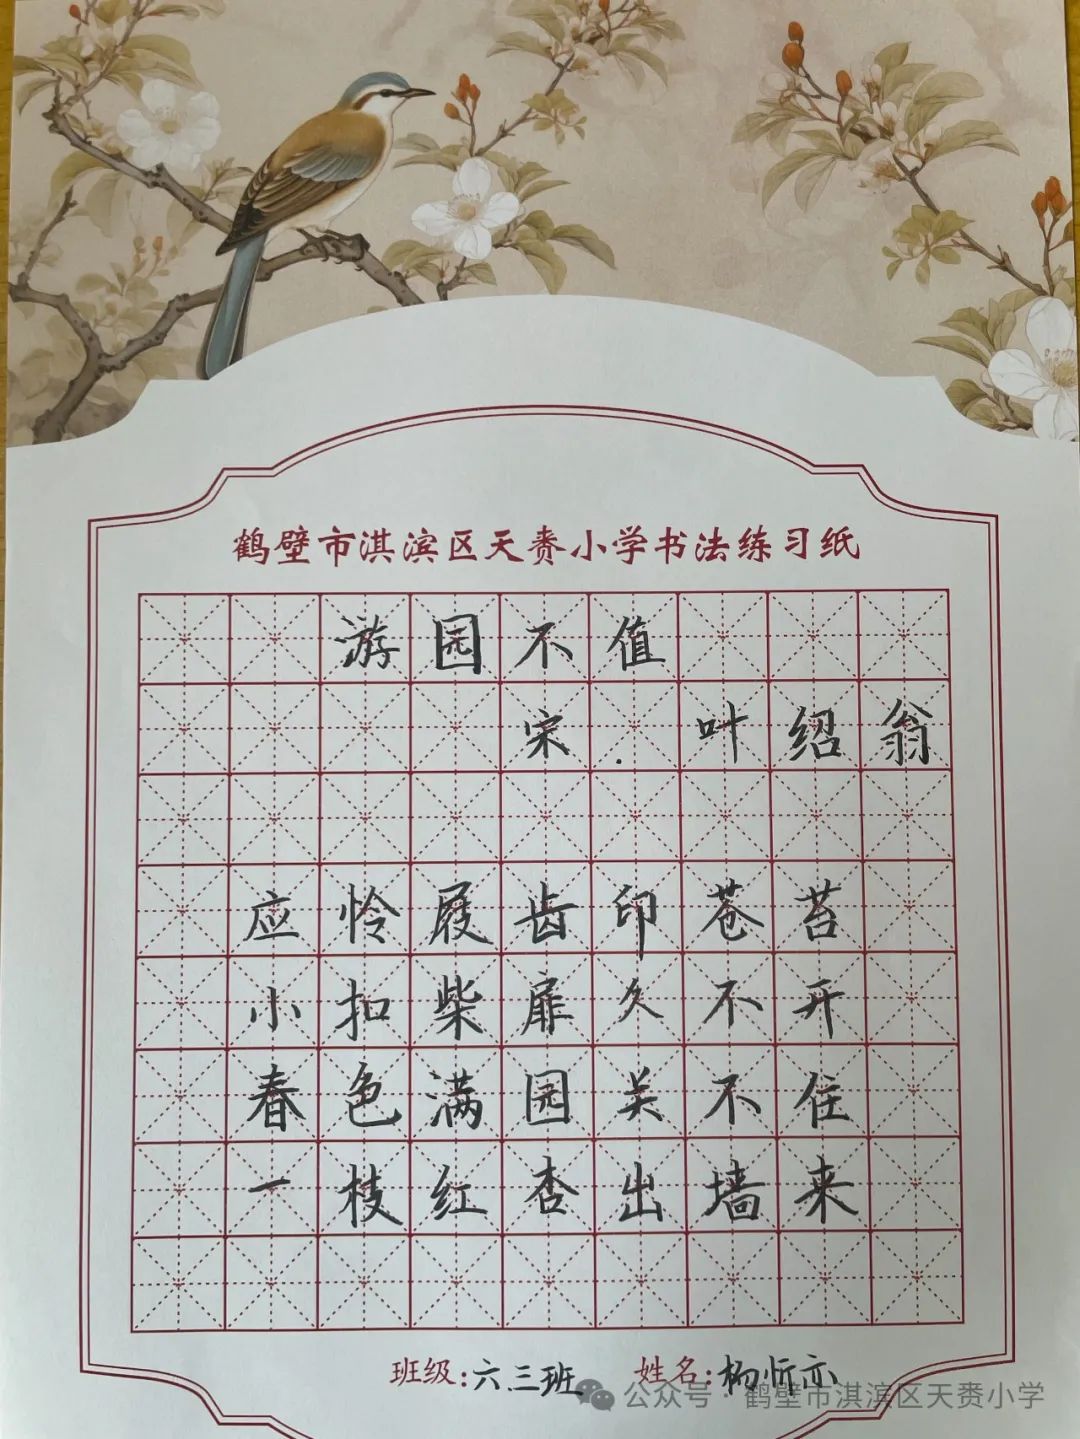 鹤壁市淇滨区天赉小学书法练习纸
游园不值
宋.叶绍翁
应怜屐齿印苍苔
小扣柴扉久不开
春色满园关不住
一枝红杏出墙来
班级:六三班 姓名:杨忻亦
公众号·鹤壁市淇滨区天赉小学